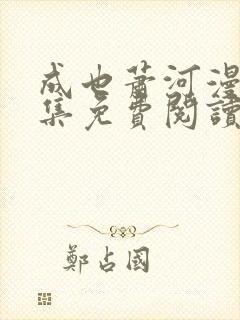 成也萧河漫
集免費閱讀
鄭占國